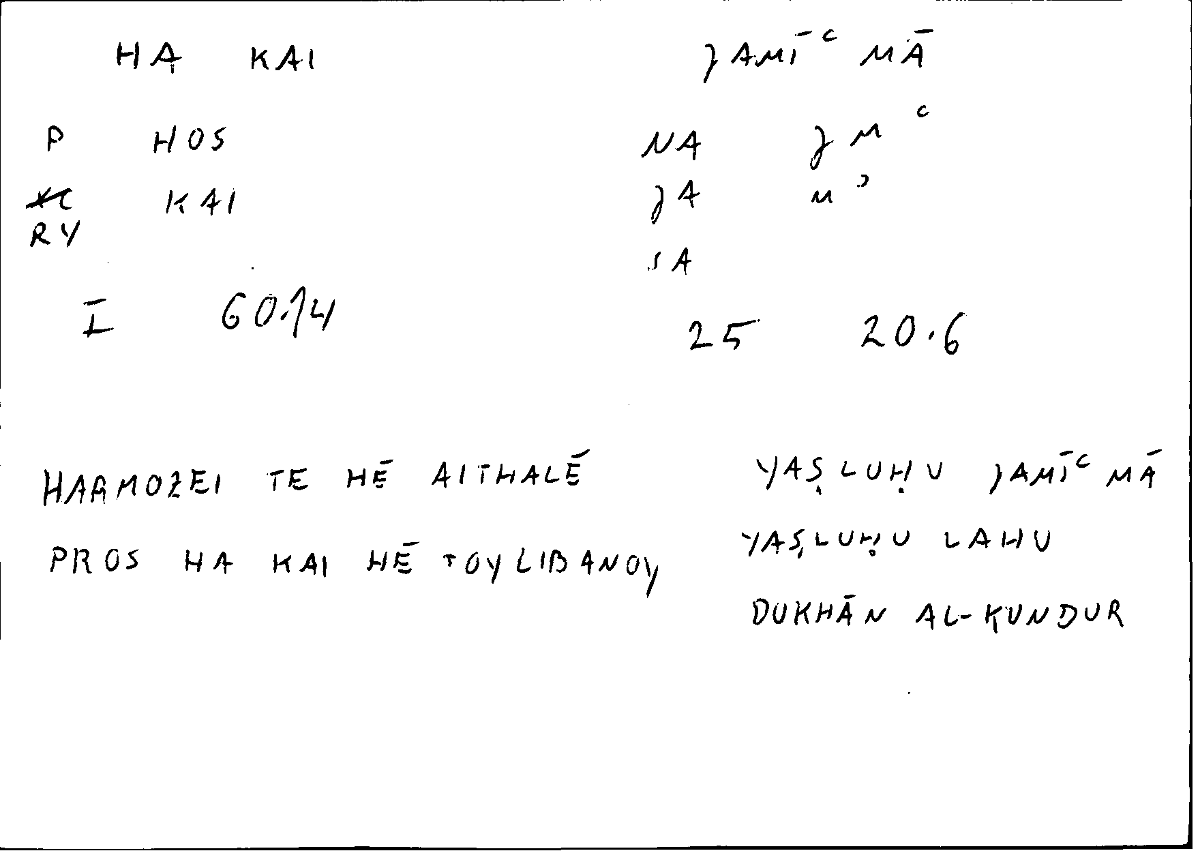 HA KAI JAMĪʿ MĀ
P HOS NA J M ʿ
KAI JA M ʾ
RY
SA
I 60.14 25 20.6
HARMOZEI TE HĒ AITHALĒ YAṢLUḤU JAMĪʿ MĀ
PROS HA KAI HĒ TOY LIBANOY YAṢLUḤU LAHU
DUKHĀN AL-KUNDUR